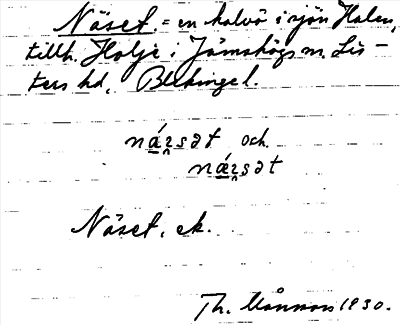 Näset. = en halvö i sjön Halen,
tillh. Holje i Jämshögs sn. Lis-
ters hd, Blekingel.
och
Näset, ek.
Th. Månsson 1930.